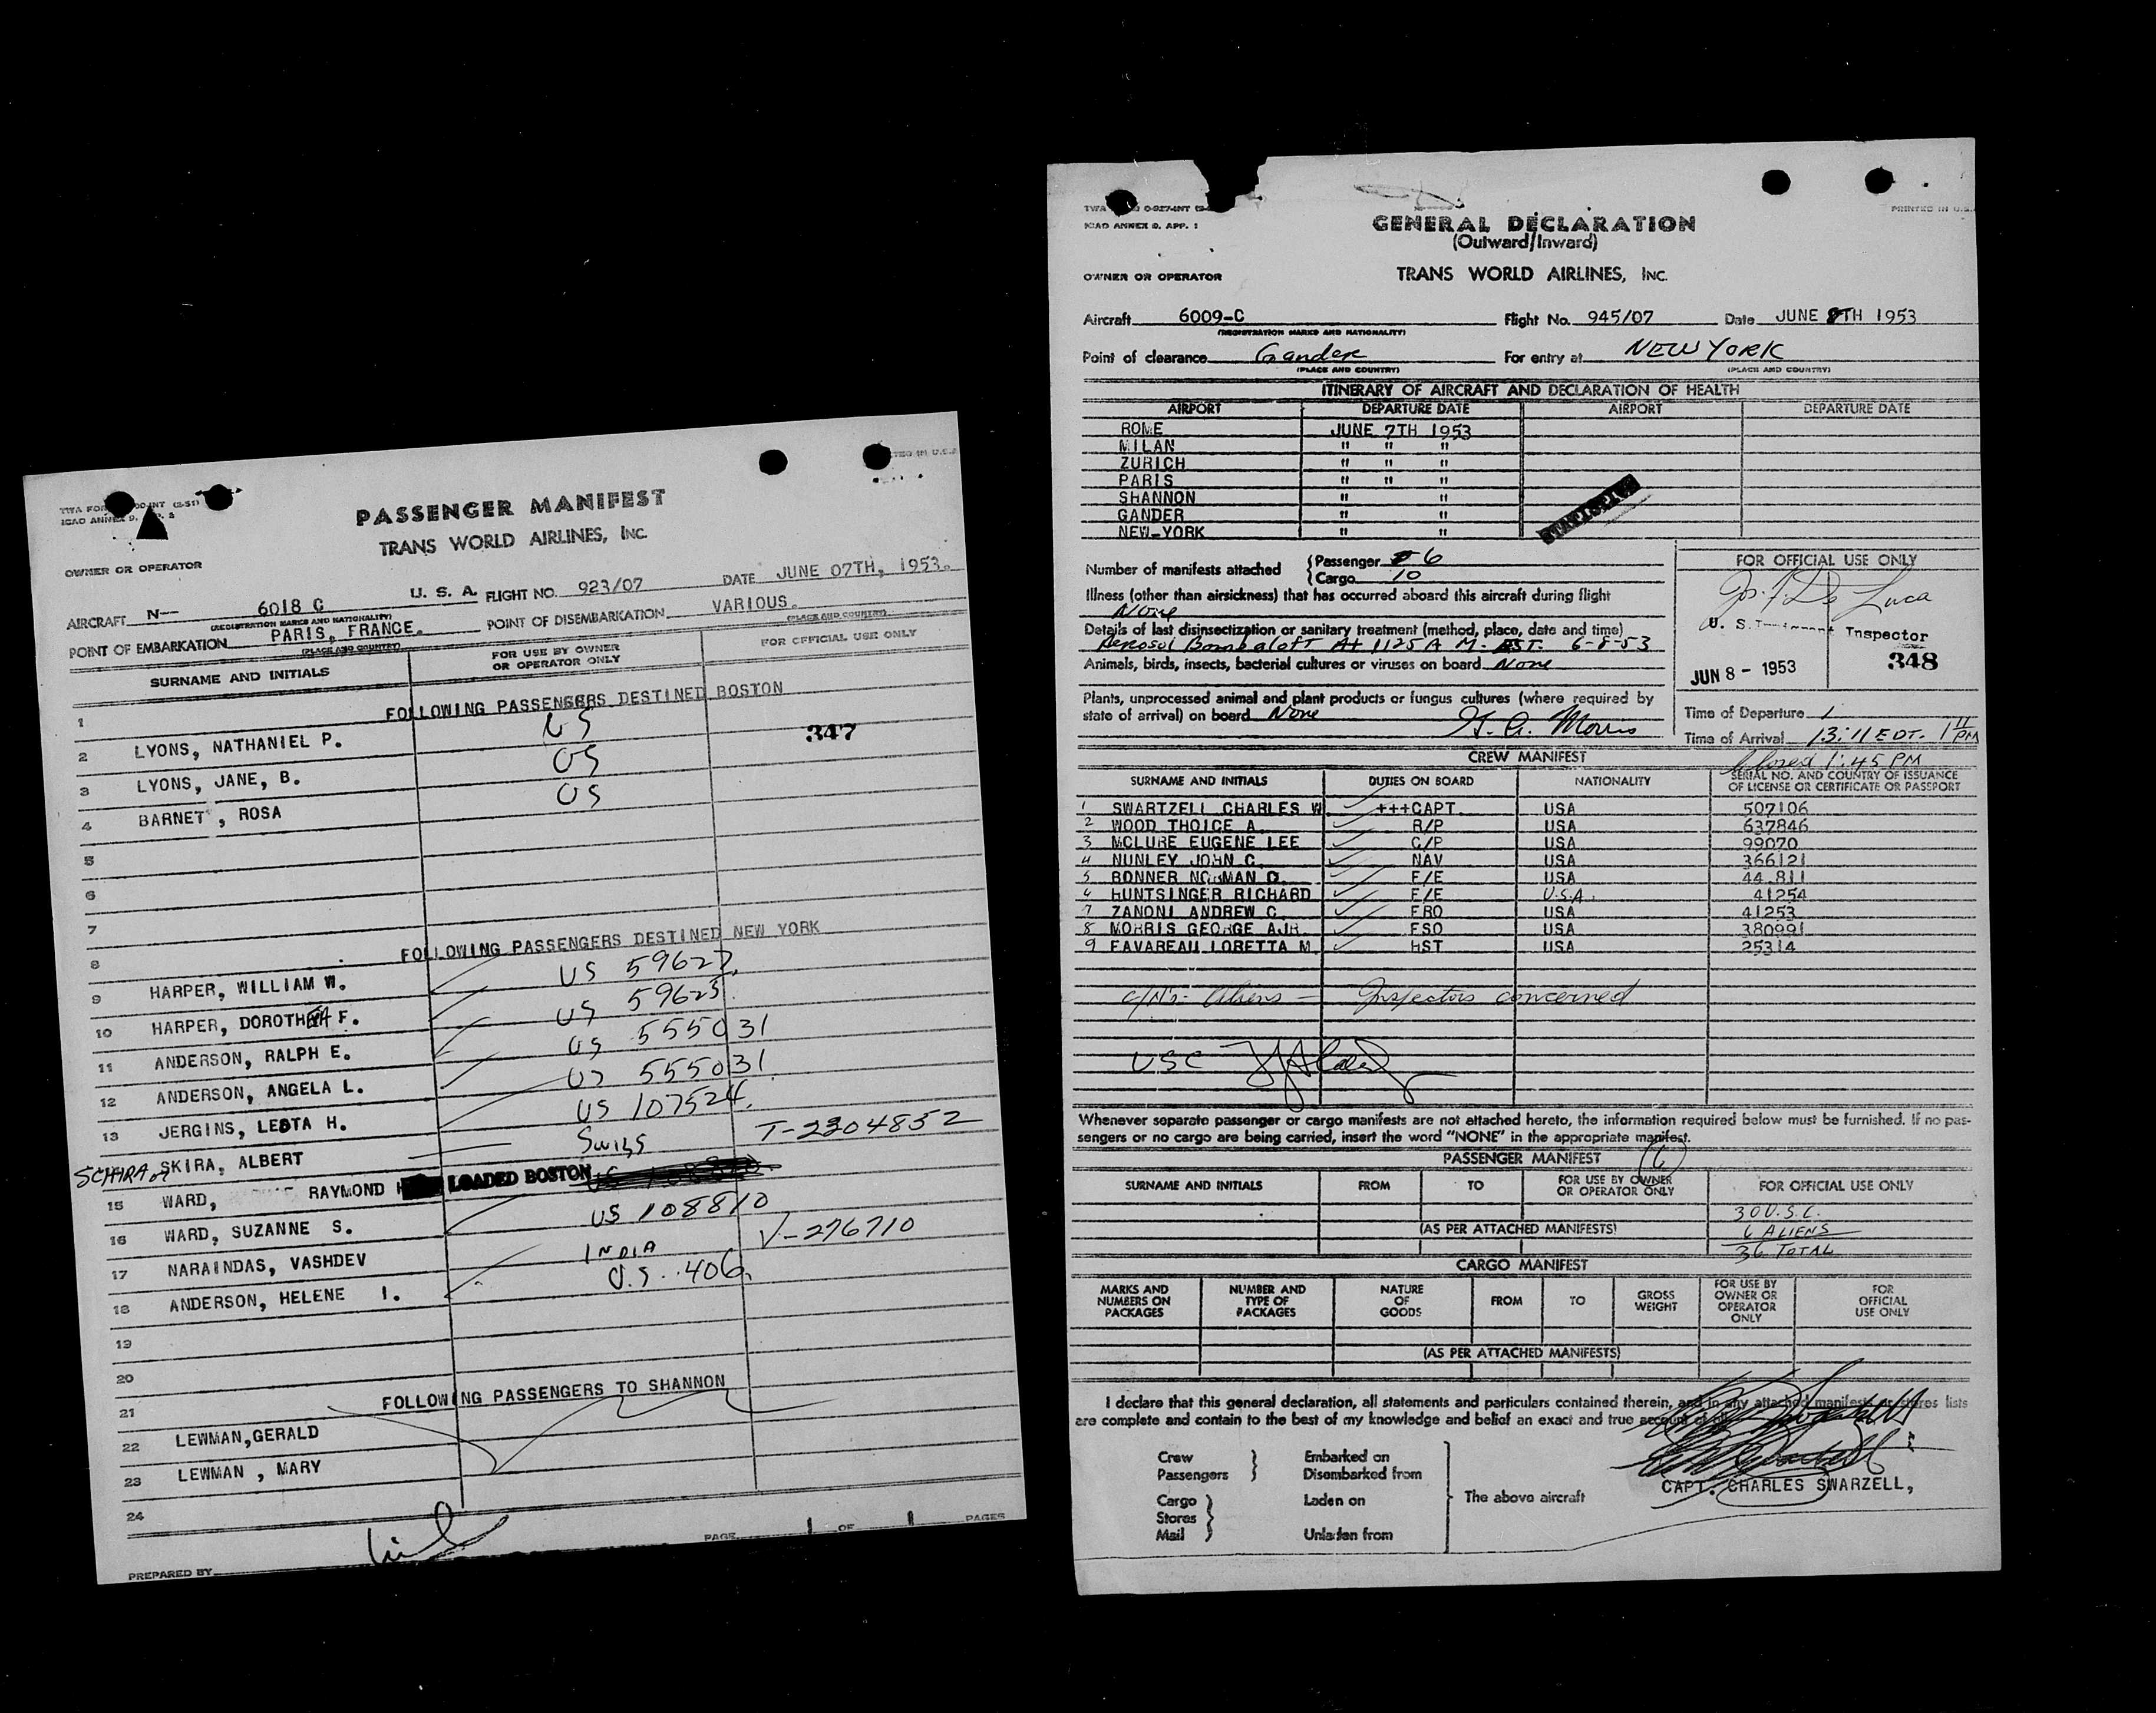 TWA FOR 00-INT (2-51)
ICAO ANNEX 9, APP. 2
PRINTED IN U.S.A.
PASSENGER MANIFEST
TRANS WORLD AIRLINES, INC.
OWNER OR OPERATOR
AIRCRAFT N-- 6018 C U. S. A. FLIGHT NO. 923/07 DATE JUNE 07TH, 1953.
(REGISTRATION MARKS AND NATIONALITY)
POINT OF EMBARKATION PARIS, FRANCE. POINT OF DISEMBARKATION VARIOUS.
(PLACE AND COUNTRY) (PLACE AND COUNTRY)
SURNAME AND INITIALS FOR USE BY OWNER OR OPERATOR ONLY FOR OFFICIAL USE ONLY
1 FOLLOWING PASSENGERS DESTINED BOSTON
2 LYONS, NATHANIEL P. US 347
3 LYONS, JANE, B. US
4 BARNET, ROSA US
5
6
7
8 FOLLOWING PASSENGERS DESTINED NEW YORK
9 HARPER, WILLIAM W. US 59627
10 HARPER, DOROTHEA F. US 59623
11 ANDERSON, RALPH E. US 555031
12 ANDERSON, ANGELA L. US 555031
13 JERGINS, LEOTA H. US 107524
SCHIRA or SKIRA, ALBERT Swiss T-2304852
15 WARD, RAYMOND H LOADED BOSTON
16 WARD, SUZANNE S. US 108810
17 NARAINDAS, VASHDEV INDIA V-276710
18 ANDERSON, HELENE I. U.S. 406
19
20
21 FOLLOWING PASSENGERS TO SHANNON
22 LEWMAN,GERALD
23 LEWMAN , MARY
24
PREPARED BY PAGE 1 OF 1 PAGES
TWA 0-927-INT
ICAO ANNEX 9, APP. 1
PRINTED IN U.S.
GENERAL DECLARATION
(Outward/Inward)
OWNER OR OPERATOR TRANS WORLD AIRLINES, INC.
Aircraft 6009-C Flight No. 945/07 Date JUNE 8TH 1953
(REGISTRATION MARKS AND NATIONALITY)
Point of clearance Gander For entry at NEW YORK
(PLACE AND COUNTRY) (PLACE AND COUNTRY)
ITINERARY OF AIRCRAFT AND DECLARATION OF HEALTH
AIRPORT DEPARTURE DATE AIRPORT DEPARTURE DATE
ROME JUNE 7TH 1953
MILAN " " "
ZURICH " " "
PARIS " " "
SHANNON " "
GANDER " "
NEW-YORK " "
STATISTICS
Number of manifests attached Passenger 6
Cargo 10
FOR OFFICIAL USE ONLY
Jos. F. De Luca
U. S. Immigrant Inspector
JUN 8 - 1953 348
Illness (other than airsickness) that has occurred aboard this aircraft during flight
None
Details of last disinsectization or sanitary treatment (method, place, date and time)
Aerosol Bomb aloft At 1125 A M. EST. 6-8-53
Animals, birds, insects, bacterial cultures or viruses on board None
Plants, unprocessed animal and plant products or fungus cultures (where required by
state of arrival) on board None G. A. Morris
Time of Departure
Time of Arrival 13:11 EDT. 1 11 PM
Closed 1:45 PM
CREW MANIFEST
SURNAME AND INITIALS DUTIES ON BOARD NATIONALITY SERIAL NO. AND COUNTRY OF ISSUANCE OF LICENSE OR CERTIFICATE OR PASSPORT
1 SWARTZELL CHARLES W +++CAPT. USA 507106
2 WOOD THOICE A R/P USA 637846
3 MCLURE EUGENE LEE C/P USA 99070
4 NUNLEY JOHN C. NAV USA 366121
5 BONNER NORMAN D. F/E USA 44 811
6 HUNTSINGER RICHARD F/E U.S.A. 41254
7 ZANONI ANDREW C. FRO USA 41253
8 MORRIS GEORGE A.JR. FSO USA 380991
9 FAVAREAU LORETTA M HST USA 25314
c/n's- Aliens - Inspectors concerned
USC
Whenever separate passenger or cargo manifests are not attached hereto, the information required below must be furnished. If no pas-
sengers or no cargo are being carried, insert the word "NONE" in the appropriate manifest.
PASSENGER MANIFEST 6
SURNAME AND INITIALS FROM TO FOR USE BY OWNER OR OPERATOR ONLY FOR OFFICIAL USE ONLY
30 U.S.C.
(AS PER ATTACHED MANIFESTS) 6 ALIENS
36 TOTAL
CARGO MANIFEST
MARKS AND NUMBERS ON PACKAGES NUMBER AND TYPE OF PACKAGES NATURE OF GOODS FROM TO GROSS WEIGHT FOR USE BY OWNER OR OPERATOR ONLY FOR OFFICIAL USE ONLY
(AS PER ATTACHED MANIFESTS)
I declare that this general declaration, all statements and particulars contained therein, and in any attached manifests or stores lists
are complete and contain to the best of my knowledge and belief an exact and true account of
Crew Embarked on
Passengers Disembarked from
Cargo Laden on The above aircraft
Stores
Mail Unladen from
CAPT. CHARLES SWARZELL,